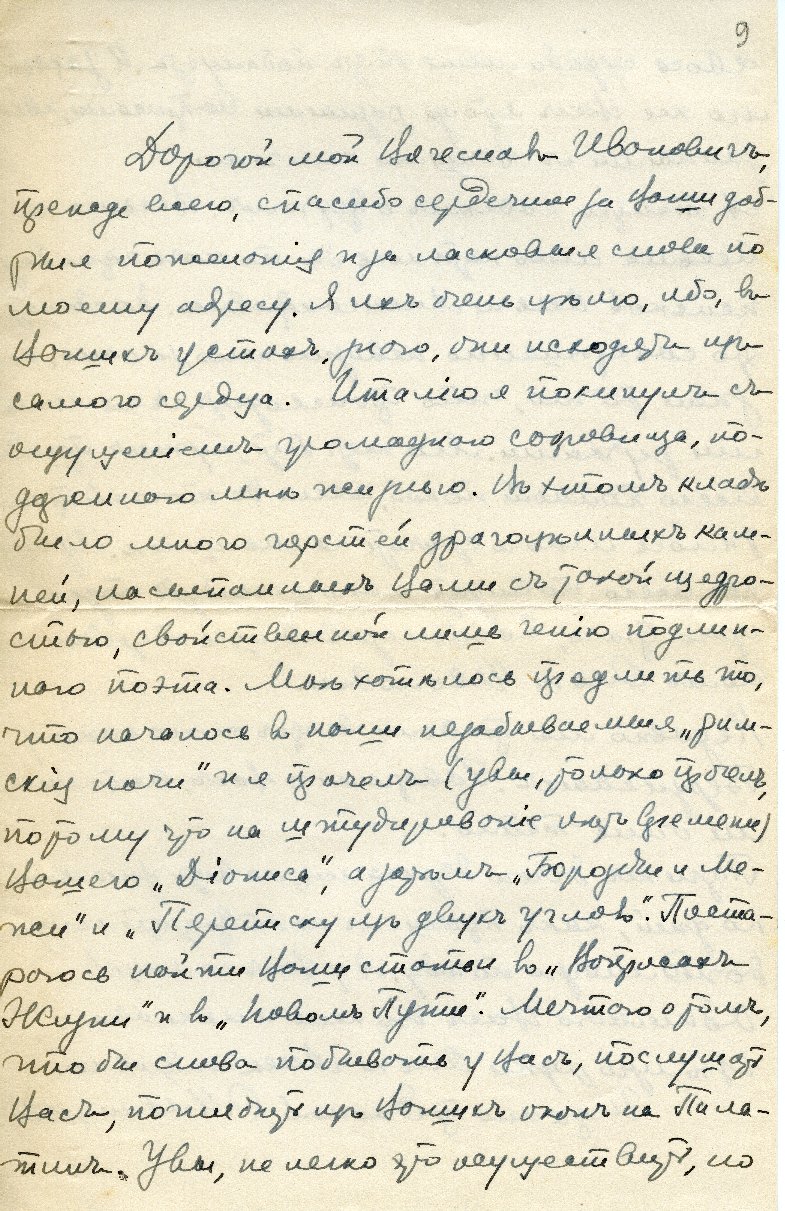 9
Дорогой мой Вячеславъ Ивановичъ,
прежде всего, спасибо сердечное за Ваши доб-
рыя пожеланія и за ласковыя слова по
моему адресу. Я ихъ очень цѣню, ибо, въ
Вашихъ устахъ, знаю, они исходятъ изъ
самого сердца. Италію я покинулъ съ
ощущеніемъ громаднаго сокровища, по-
даренного мнѣ жизнью. Въ этомъ кладѣ
было много горстей драгоцѣнныхъ кам-
ней, насыпанныхъ Вами съ такой щедро-
стью, свойственной лишь генію подлин-
наго поэта. Мнѣ хотѣлось продлить то,
что началось въ наши незабываемыя „рим-
скія ночи" и я прочелъ (увы, только прочелъ,
потому что на штудированіе нѣтъ времени)
Вашего „Діониса", а затѣмъ „Борозды и Ме-
жи" и „Переписку изъ двухъ угловъ". Поста-
раюсь найти Ваши статьи въ „Вопросахъ
Жизни" и въ „Новомъ Пути". Мечтаю о томъ,
что бы снова побывать у Васъ, послушать
Васъ, поглядѣть изъ Вашихъ оконъ на Пала-
тинъ. Увы, не легко это осуществить, но